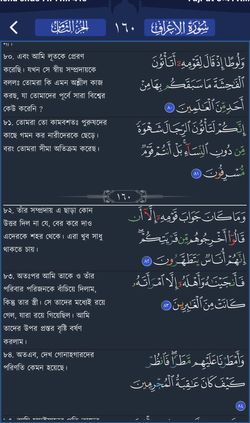 سورة الأعراف
١٦٠
الجزء الثامن
৮০. এবং আমি লূতকে প্রেরণ
করেছি। যখন সে স্বীয় সম্প্রদায়কে
বললঃ তোমরা কি এমন অশ্লীল কাজ
করছ, যা তোমাদের পূর্বে সারা বিশ্বের
কেউ করেনি ?
وَلُوطًا إِذْ قَالَ لِقَوْمِهِۦٓ أَتَأْتُونَ
ٱلْفَٰحِشَةَ مَا سَبَقَكُم بِهَا مِنْ
أَحَدٍ مِّنَ ٱلْعَٰلَمِينَ ٨٠
৮১. তোমরা তো কামবশতঃ পুরুষদের
কাছে গমন কর নারীদেরকে ছেড়ে।
বরং তোমরা সীমা অতিক্রম করেছ।
إِنَّكُمْ لَتَأْتُونَ ٱلرِّجَالَ شَهْوَةً
مِّن دُونِ ٱلنِّسَآءِ بَلْ أَنتُمْ قَوْمٌ
مُّسْرِفُونَ ٨١
١٦٠
৮২. তাঁর সম্প্রদায় এ ছাড়া কোন
উত্তর দিল না যে, বের করে দাও
এদেরকে শহর থেকে। এরা খুব সাধু
থাকতে চায়।
وَمَا كَانَ جَوَابَ قَوْمِهِۦٓ إِلَّآ أَن
قَالُوٓا۟ أَخْرِجُوهُم مِّن قَرْيَتِكُمْ
إِنَّهُمْ أُنَاسٌ يَتَطَهَّرُونَ ٨٢
৮৩. অতঃপর আমি তাকে ও তাঁর
পরিবার পরিজনকে বাঁচিয়ে দিলাম,
কিন্তু তার স্ত্রী। সে তাদের মধ্যেই রয়ে
গেল, যারা রয়ে গিয়েছিল। আমি
তাদের উপর প্রস্তর বৃষ্টি বর্ষণ
করলাম।
فَأَنجَيْنَٰهُ وَأَهْلَهُۥٓ إِلَّا ٱمْرَأَتَهُۥ
كَانَتْ مِنَ ٱلْغَٰبِرِينَ ٨٣
৮৪. অতএব, দেখ গোনাহগারদের
পরিণতি কেমন হয়েছে।
وَأَمْطَرْنَا عَلَيْهِم مَّطَرًا فَٱنظُرْ
كَيْفَ كَانَ عَٰقِبَةُ ٱلْمُجْرِمِينَ
٨٤